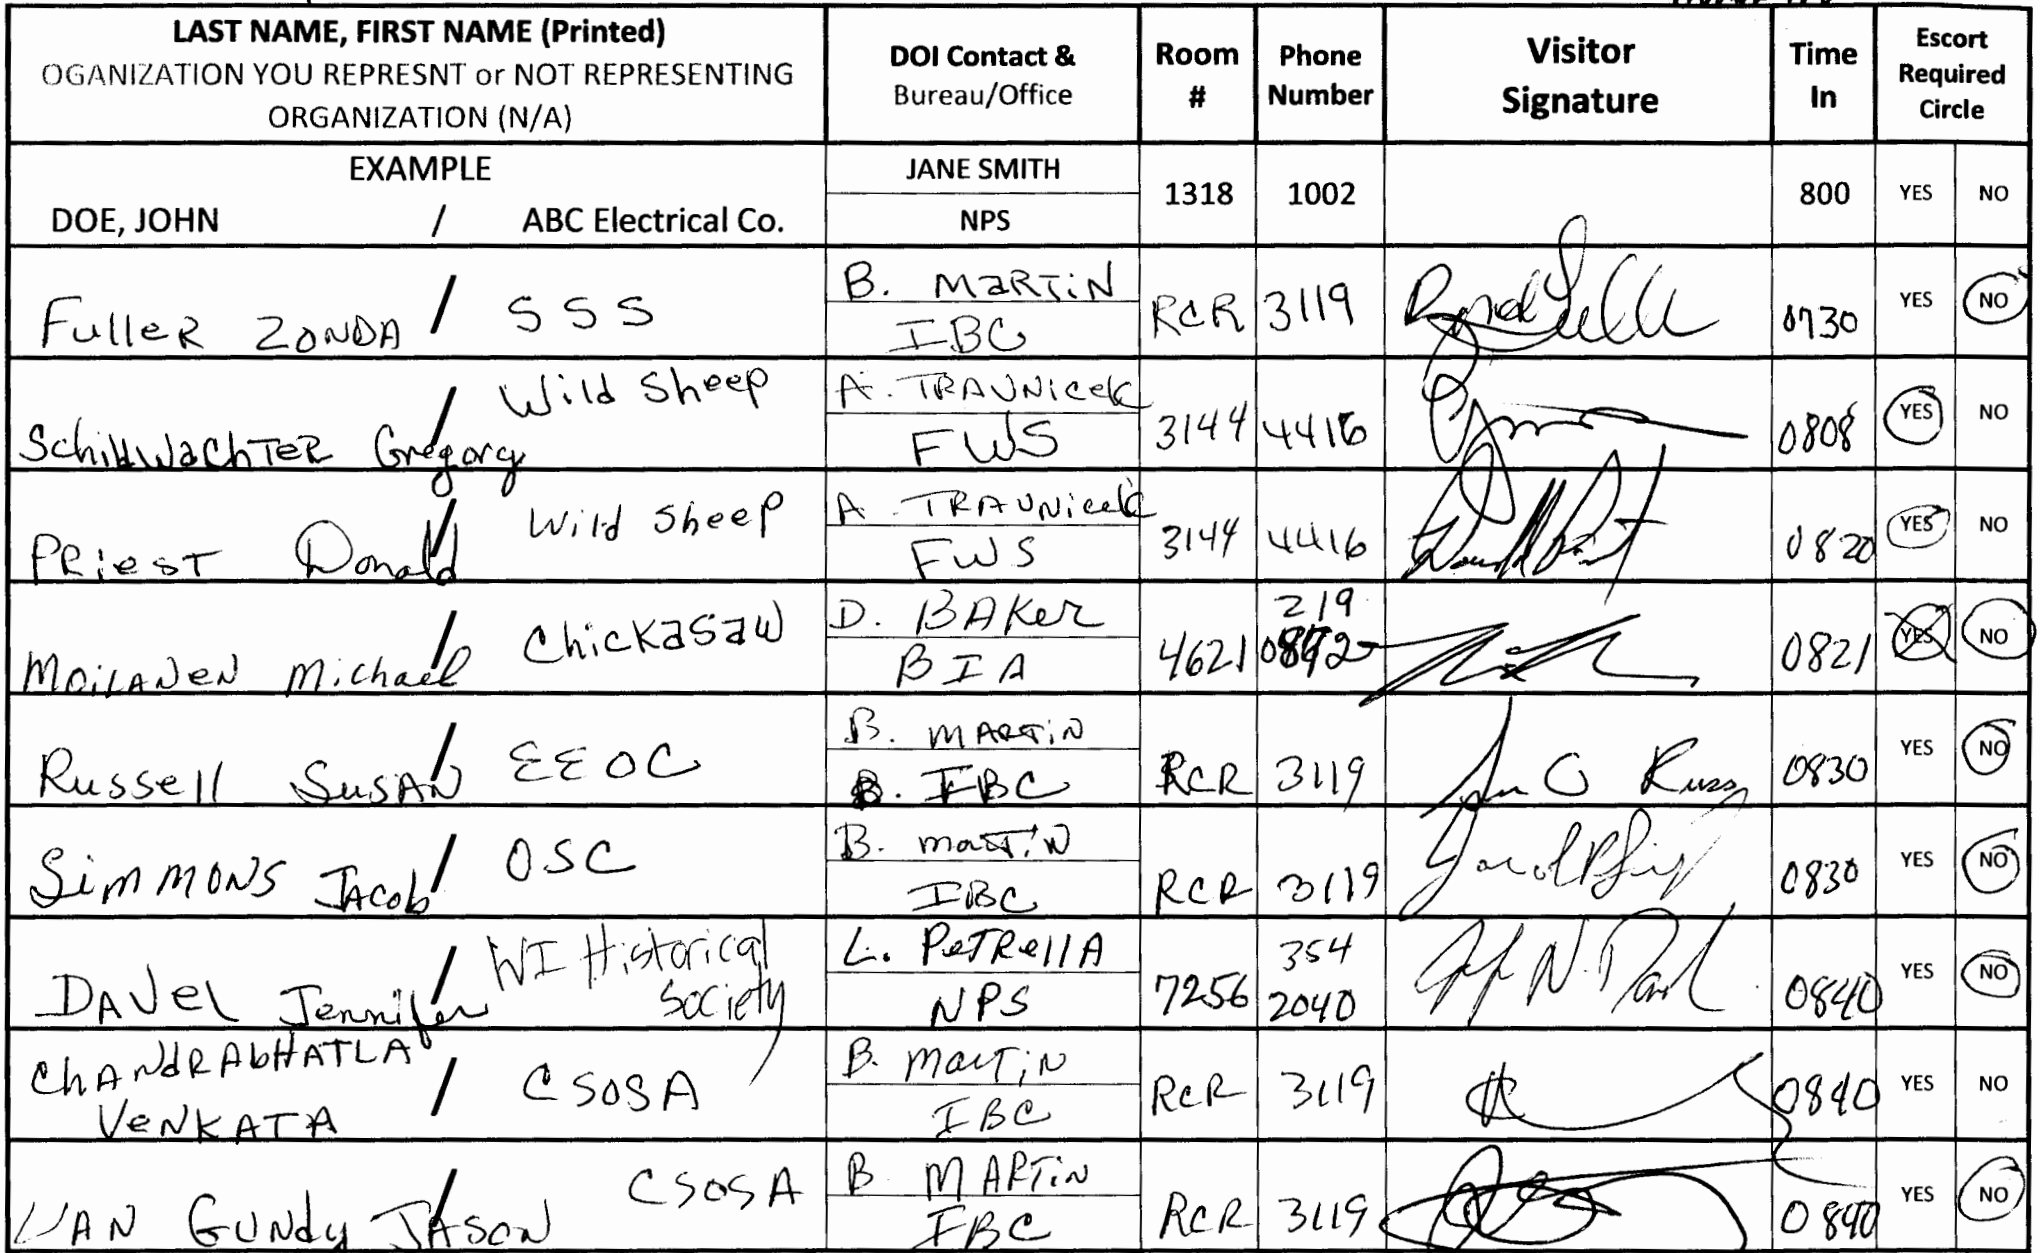 LAST NAME, FIRST NAME (Printed)
OGANIZATION YOU REPRESNT or NOT REPRESENTING
ORGANIZATION (N/A)
DOI Contact &
Bureau/Office
Room
#
Phone
Number
Visitor
Signature
Time
In
Escort
Required
Circle
EXAMPLE
DOE, JOHN / ABC Electrical Co.
JANE SMITH
NPS
1318 1002 800 YES NO
Fuller ZONDA / SSS
B. MARTiN
IBC
RCR 3119 0730 YES NO
SchildwachTeR Gregory / Wild Sheep
A. TRAVNicek
FWS
3144 4416 0808 YES NO
PRiesT Donald / Wild Sheep
A TRAVNicek
FWS
3144 4416 0820 YES NO
MoiLANeN Michael / Chickasaw
D. BAKer
BIA
4621 219
0821 YES NO
Russell SusAN / EEOC
B. MARTiN
B. IBC
RCR 3119 0830 YES NO
SimMONS JAcob / OSC
B. marTiN
IBC
RCR 3119 0830 YES NO
DAVeL Jennifer / WI Historical
Society
L. PeTRellA
NPS
7256 354
2040 0840 YES NO
ChANdRAbHATLA
VeNKATA / CSOSA
B. MarTiN
IBC
RCR 3119 0840 YES NO
VAN GUNdy JASON / CSOSA
B MARTiN
IBC
RCR 3119 0840 YES NO